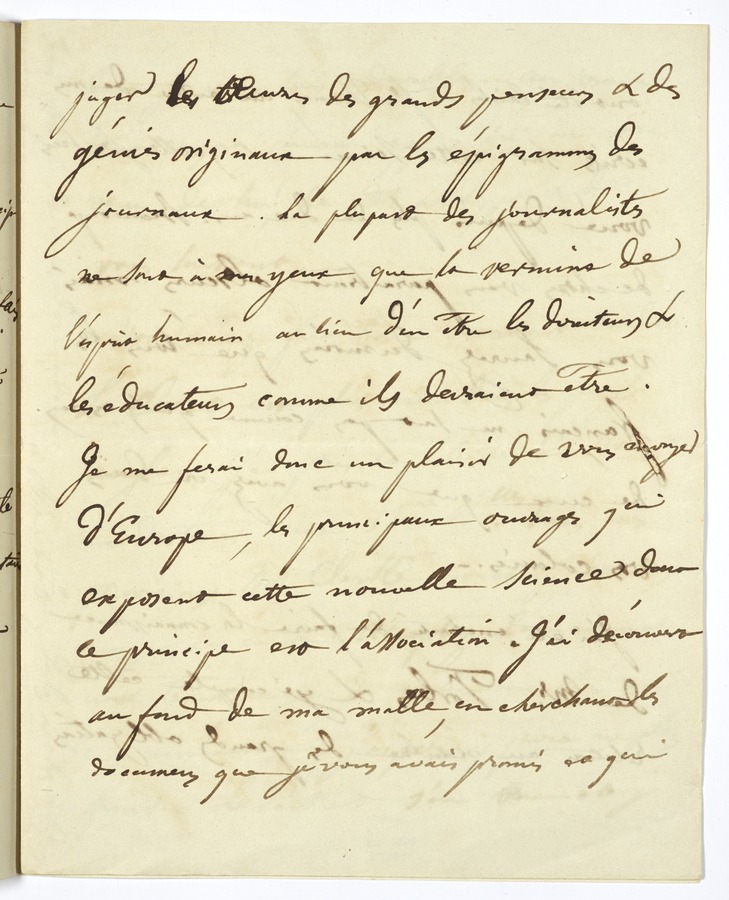 juger les œuvres des grands penseurs & des
génies originaux par les épigrammes des
journaux. La plupart des journalistes
ne sont à mes yeux que la vermine de
l'esprit humain au lieu d'en être les directeurs &
les éducateurs comme ils devraient être.
Je me ferai donc un plaisir de vous envoyer
d'Europe, les principaux ouvrages qui
exposent cette nouvelle science dont
le principe est l'association. J'ai découvert
au fond de ma malle, en cherchant les
documens que je vous avais promis et qui